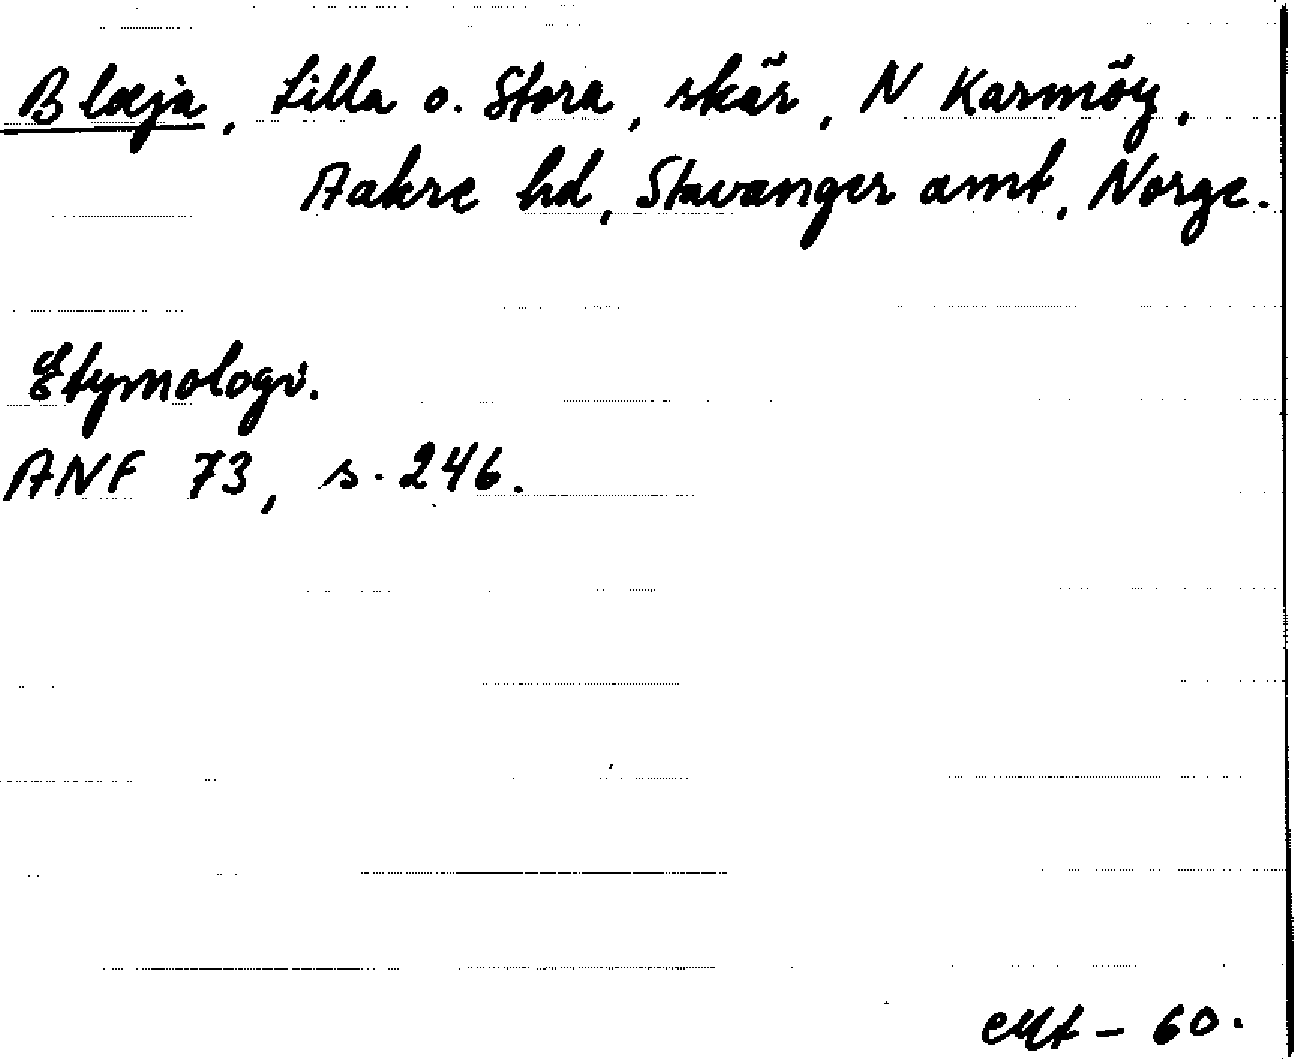 Blæja, Lilla o. Stora, skär, N Karmöy,
Aakre hd, Stavanger amt, Norge.
Etymologi.
ANF 73, s. 246.
- 60.